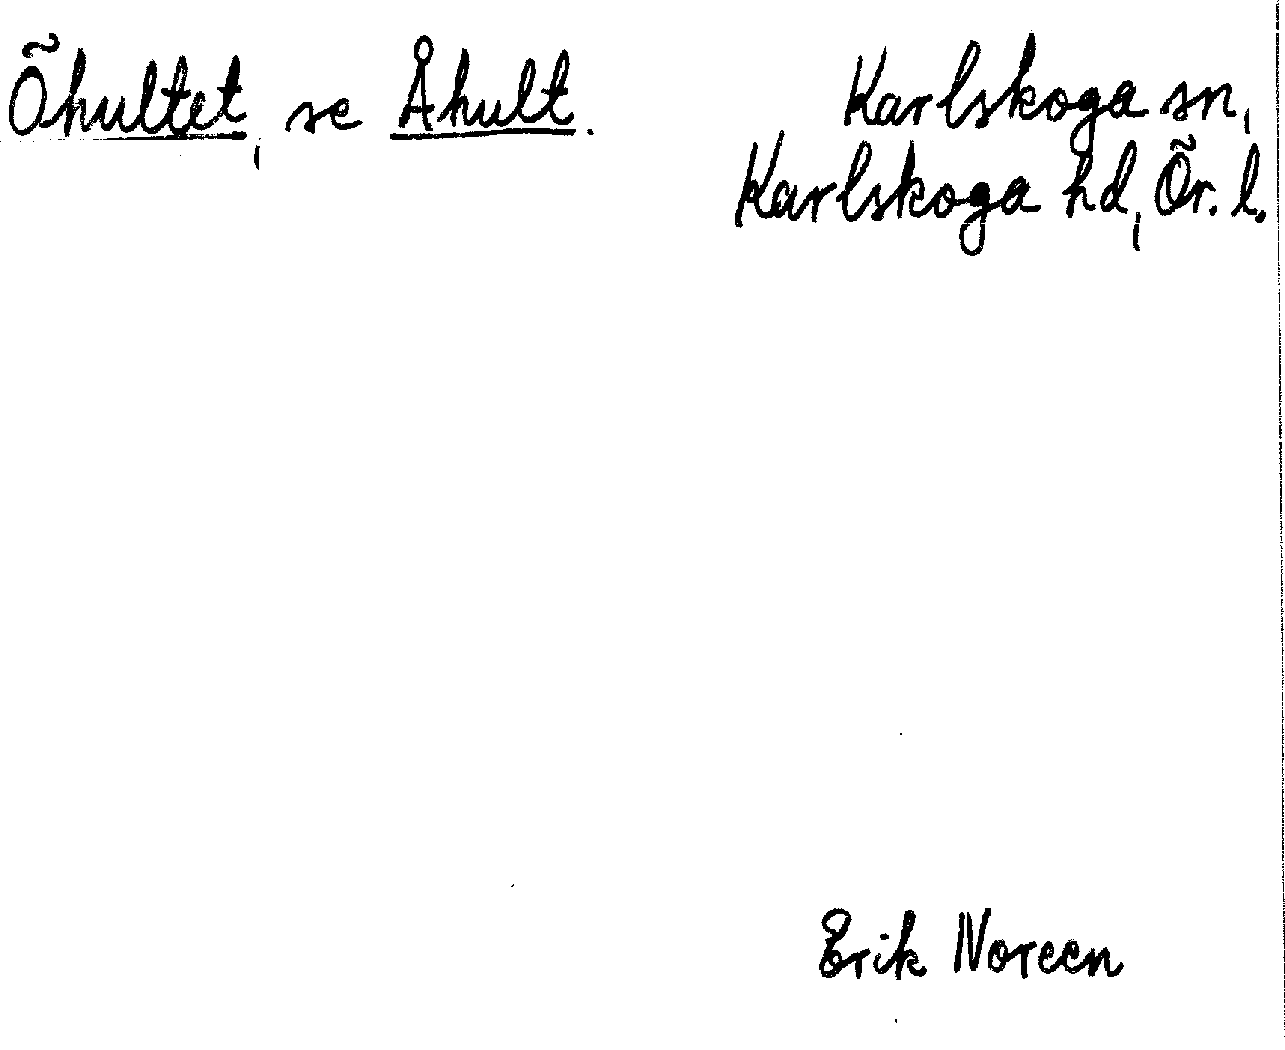 Öhultet, se Åhult.
Karlskoga sn,
Karlskoga hd, Ör. l.
Erik Noreen